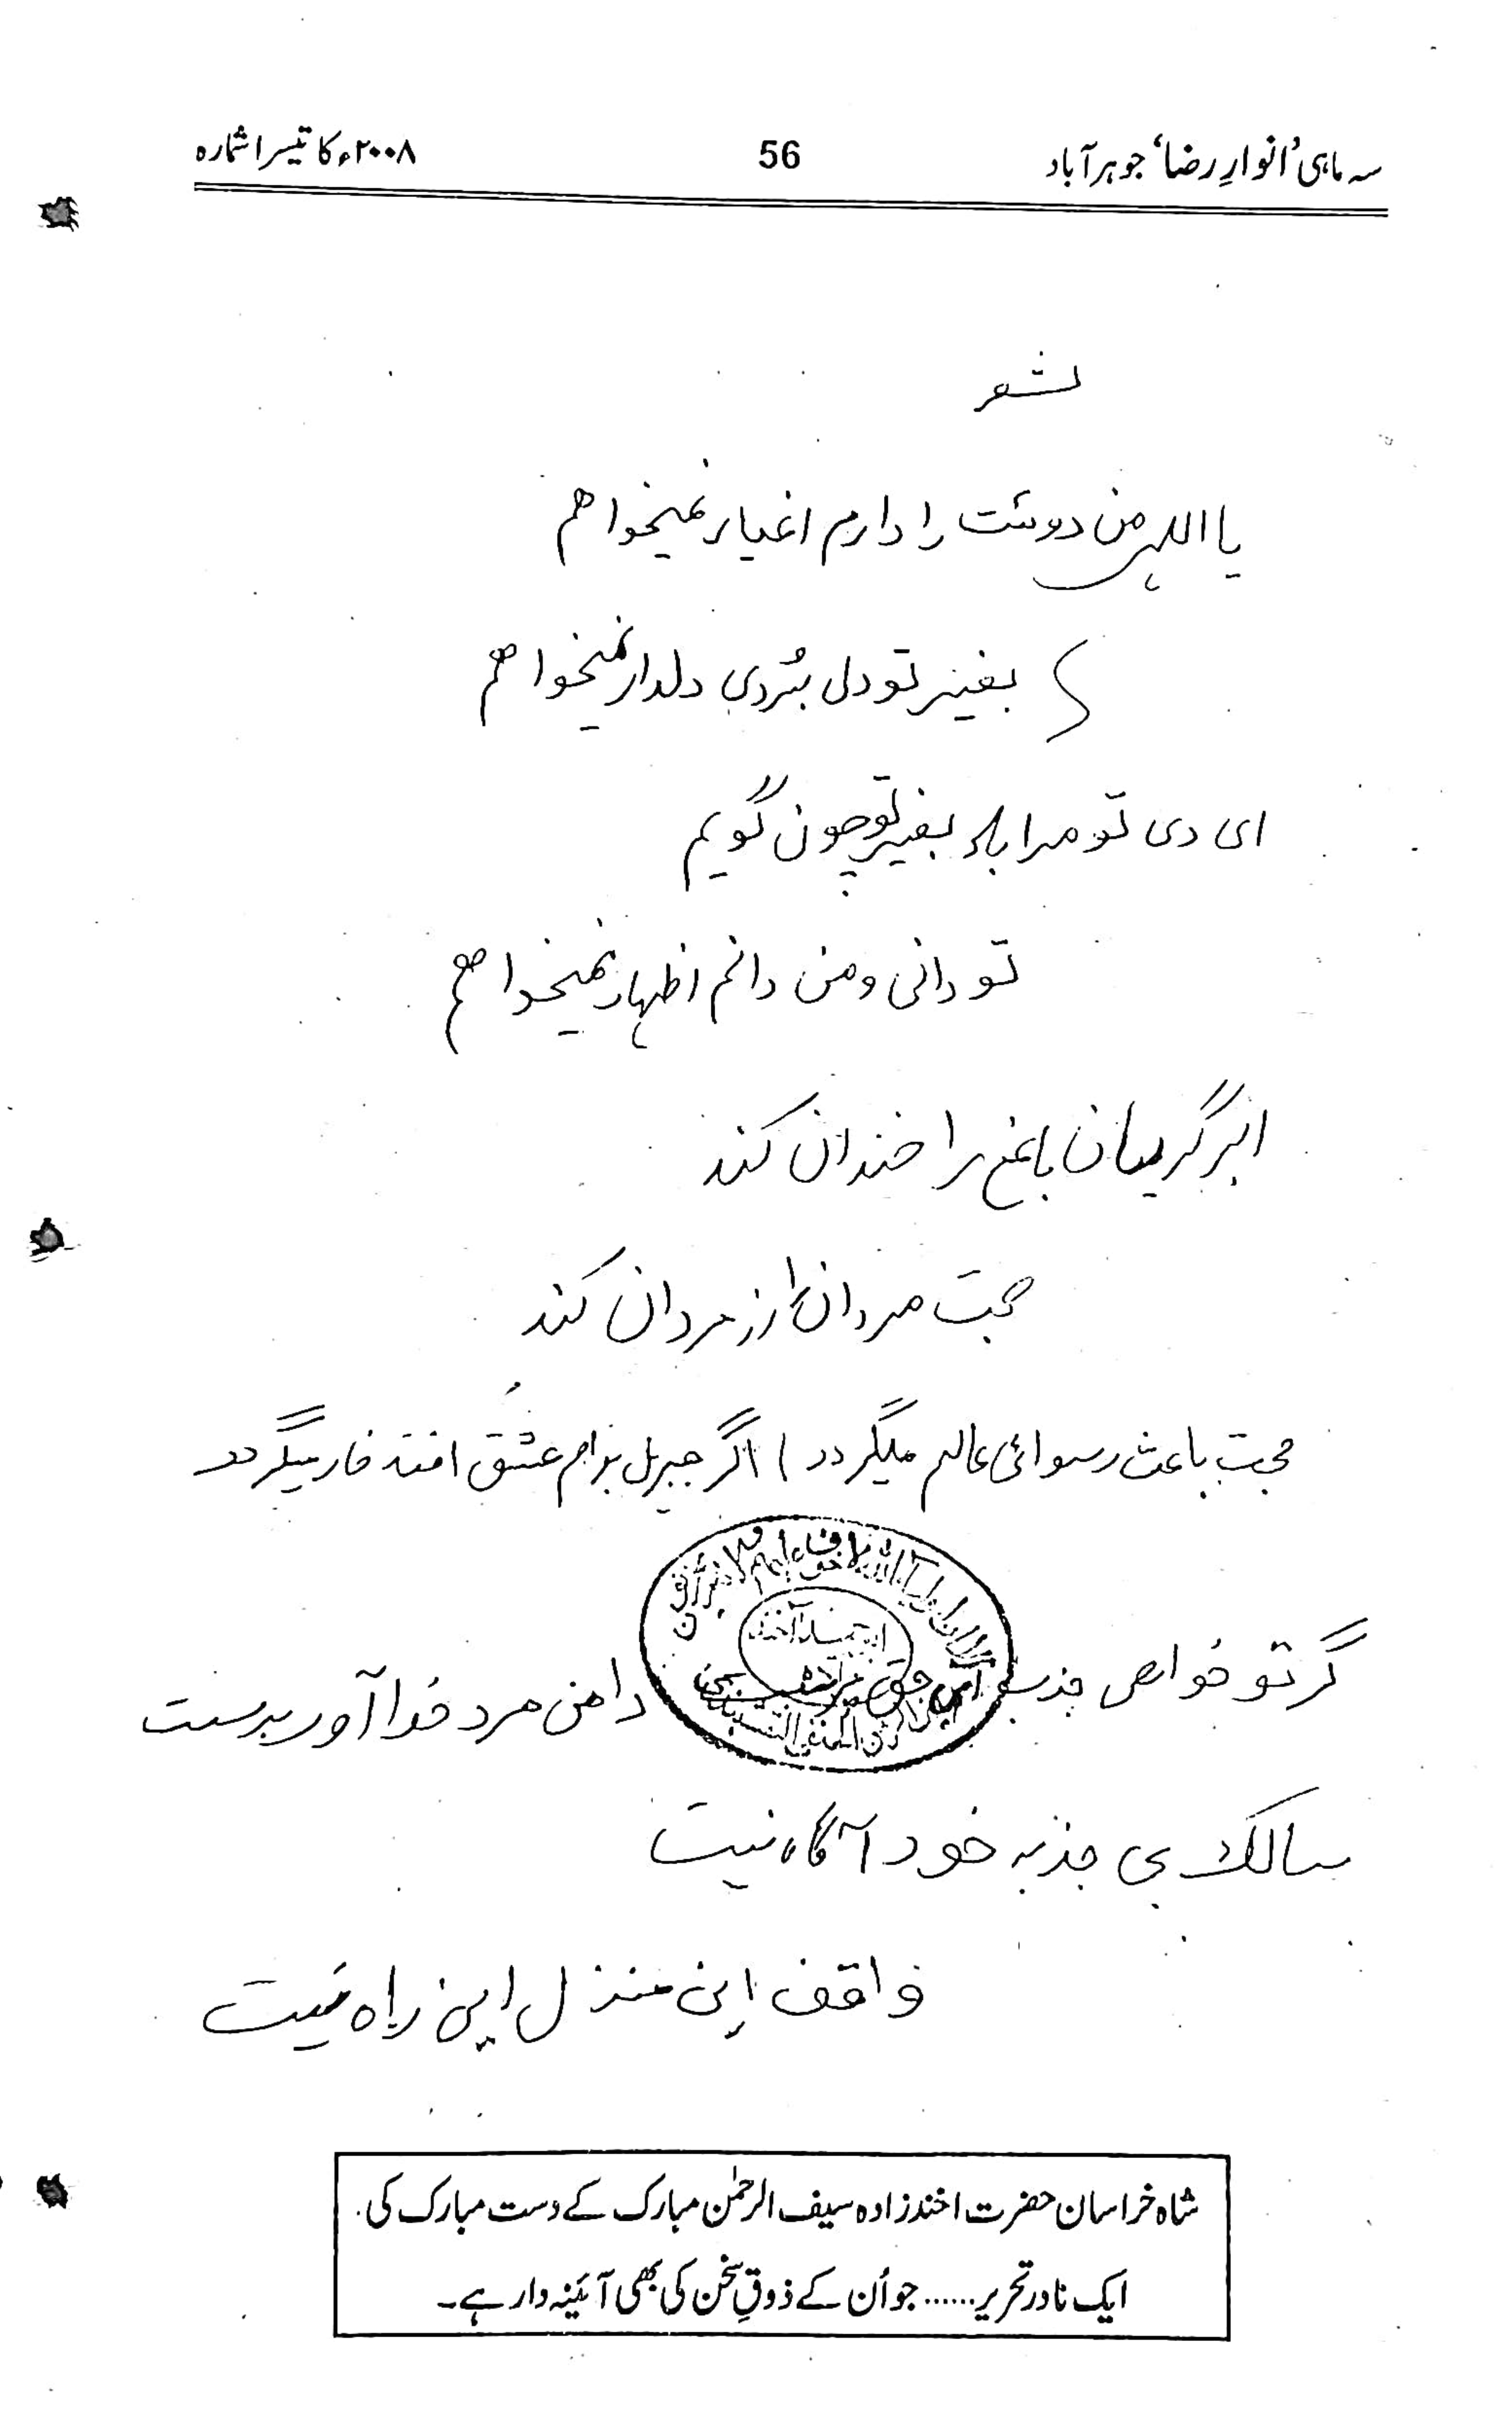 سہ ماہی ’انوارِ رضا‘ جوہرآباد 56 ۲۰۰۸ء کا تیسرا شمارہ
شعر
یا الٰہی من دوست را دارم اغیار نمیخواهم
بغیر تو دل بُردی دلدار نمیخواهم
ای دی تو مرا بغیر تو چون گویم
تو دانی و من دانم اظهار نمیخواهم
ابر گریان باغ را خندان کند
صحبت مردان از مردان کند
محبت باعث رسوائی عالم میگردد / اگر جبریل بدام عشق افتد خار میگردد
گر تو خواهی جذب دامن مرد خدا آور بدست
سالک بی جذبہ خود آگاہ نیست
واقف این منزل این راہ نیست
شاہ خراسان حضرت اخندزادہ سیف الرحمٰن مبارک کے دست مبارک کی
ایک نادر تحریر...... جو اُن کے ذوقِ سخن کی بھی آئینہ دار ہے۔